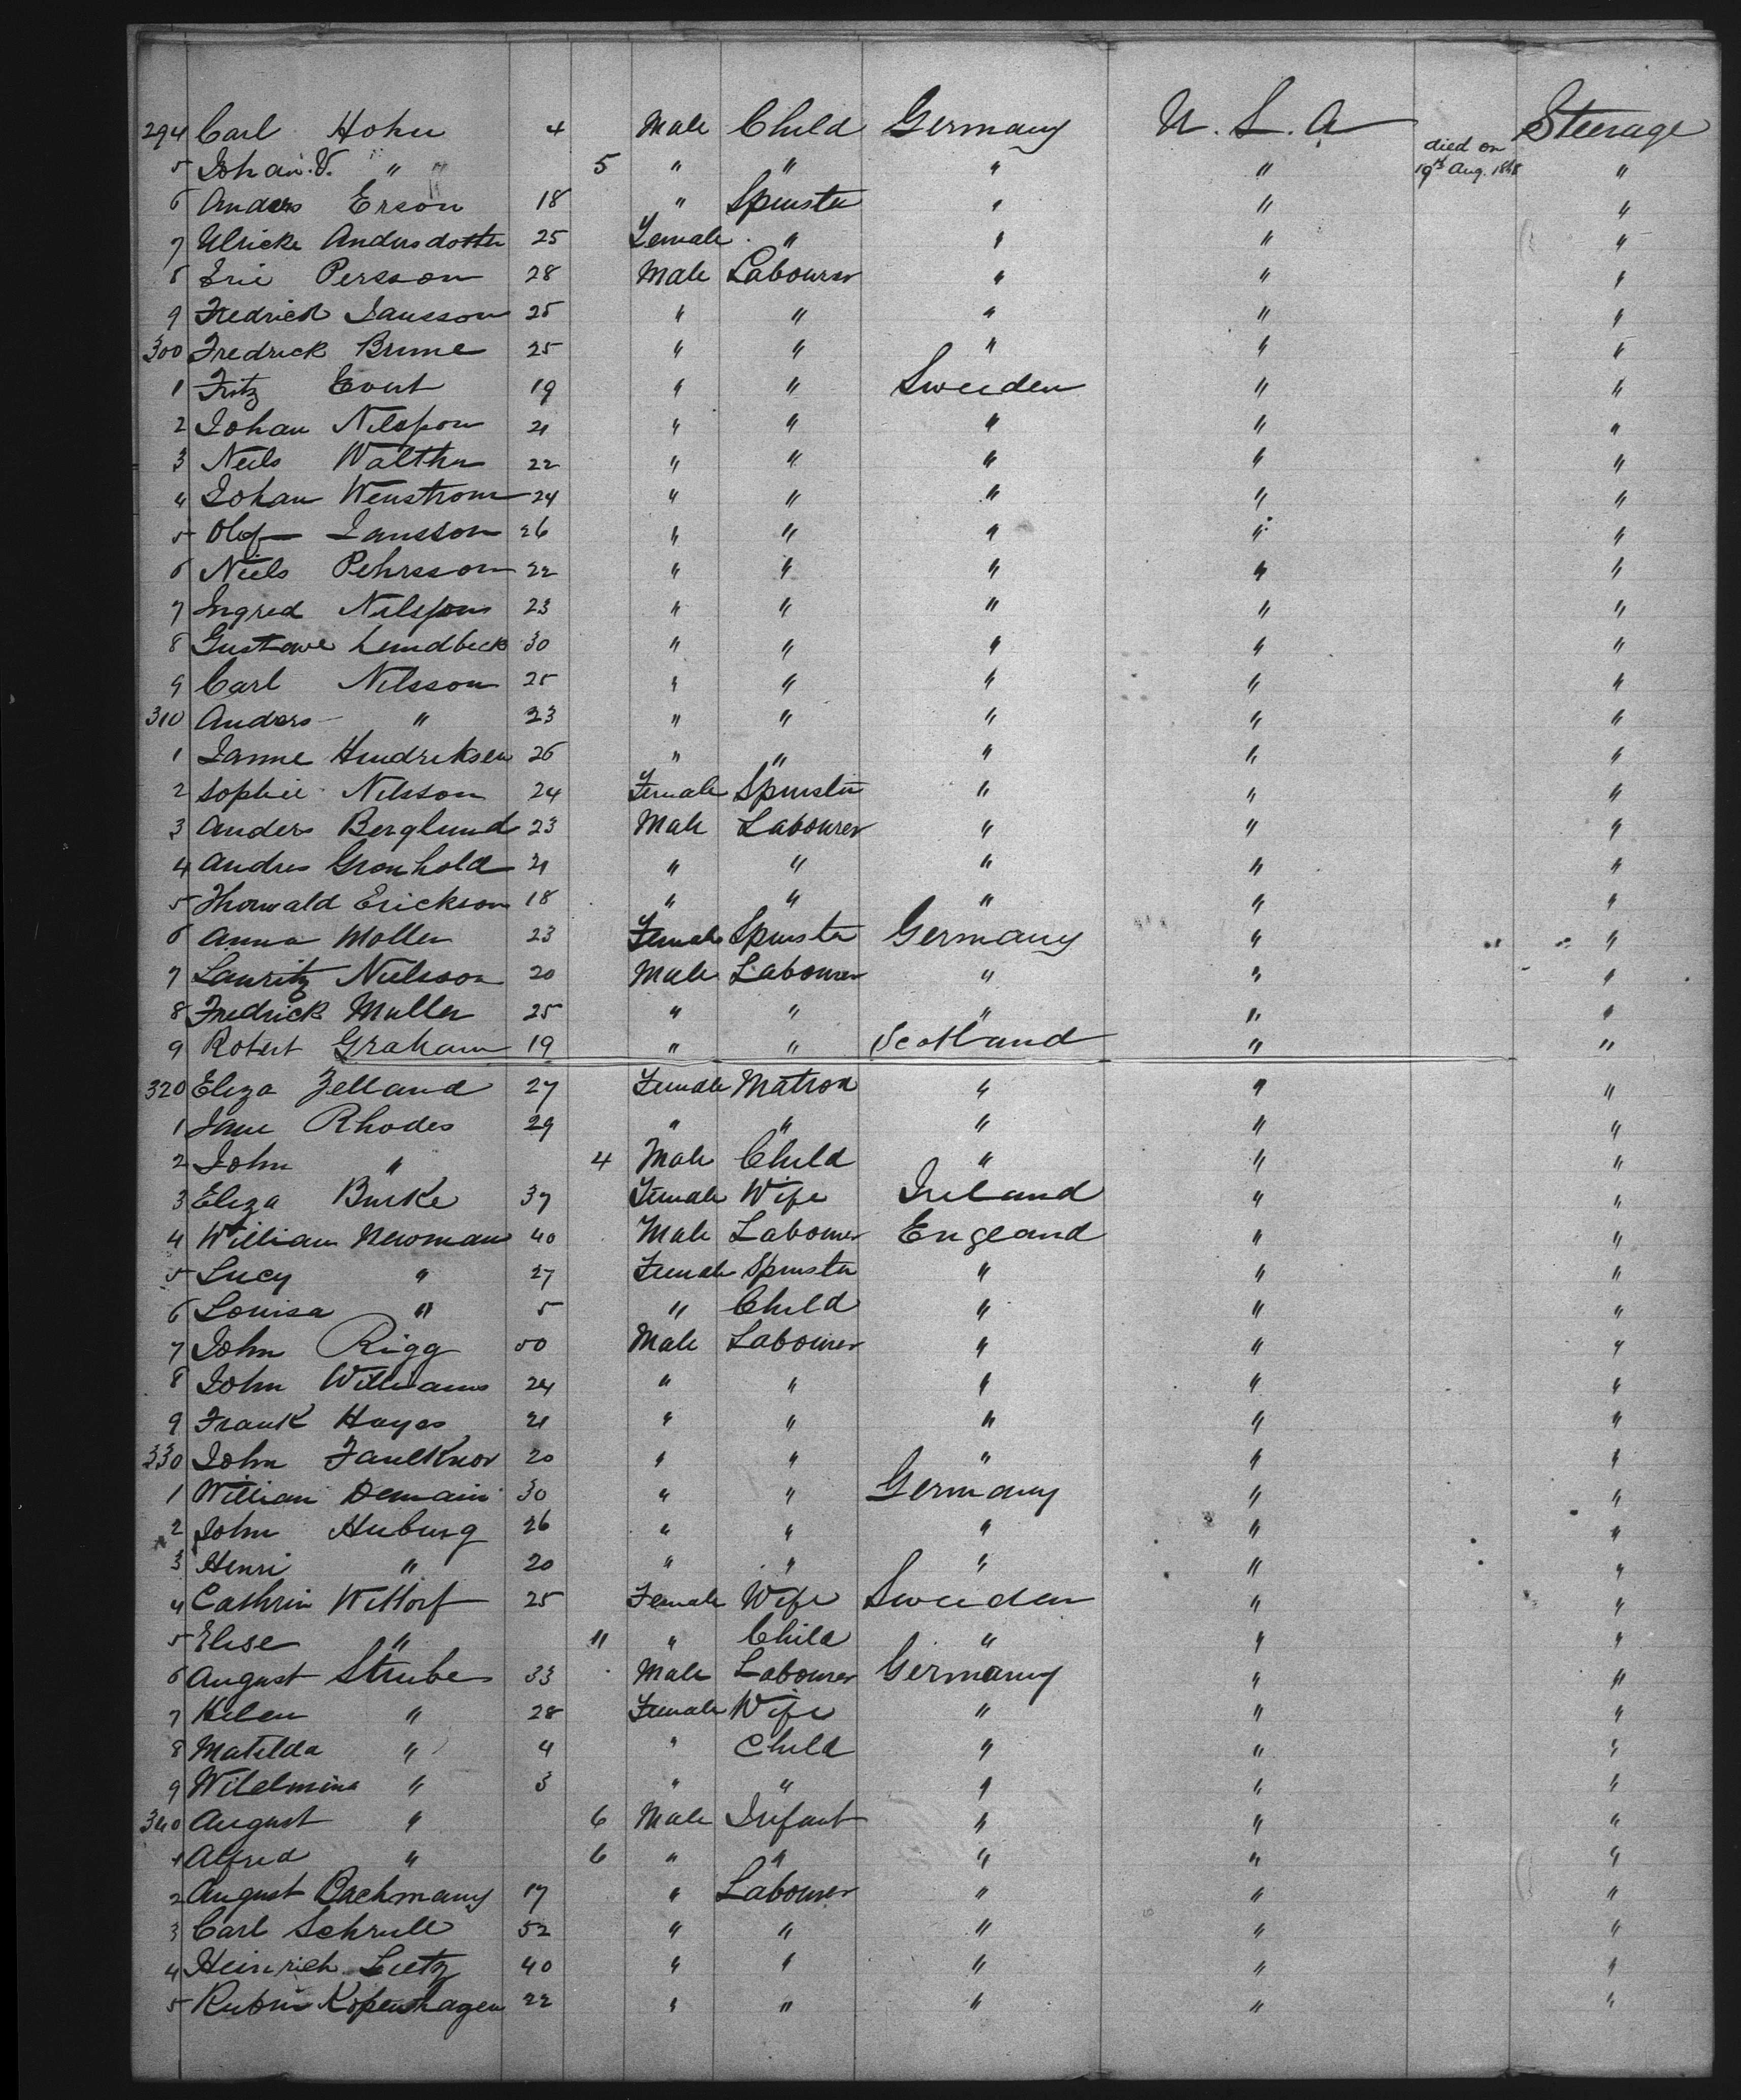 294 Carl Hohn 4 Male Child Germany U.S.A Steerage
5 Johan. V. " 5 " " " " died on 19th Aug. 1888 "
6 Anders Erson 18 " Spinster " " "
7 Ulricke Andersdotter 25 Female " " " "
8 Eric Persson 28 Male Labourer " " "
9 Fredrick Jansson 25 " " " " "
300 Fredrick Brune 25 " " " " "
1 Fritz Evert 19 " " Sweeden " "
2 Johan Nilsson 21 " " " " "
3 Neils Walther 22 " " " " "
4 Johan Wenstrom 24 " " " " "
5 Olof Jansson 26 " " " " "
6 Niels Pehrsson 22 " " " " "
7 Ingred Nilsson 23 " " " " "
8 Gustave Lundbeck 30 " " " " "
9 Carl Nilsson 25 " " " " "
310 Anders " 23 " " " " "
1 Janne Hendriksen 26 " " " " "
2 Sophie Nilsson 24 Female Spinster " " "
3 Anders Berglund 23 Male Labourer " " "
4 Andres Gronhold 21 " " " " "
5 Thorwald Erickson 18 " " " " "
6 Anna Moller 23 Female Spinster Germany " "
7 Lauritz Nielsson 20 Male Labourer " " "
8 Fredrick Muller 25 " " " " "
9 Robert Graham 19 " " Scotland " "
320 Eliza Zelland 27 Female Matron " " "
1 Jane Rhodes 29 " " " " "
2 John " 4 Male Child " " "
3 Eliza Burke 37 Female Wife Ireland " "
4 William Newman 40 Male Labourer England " "
5 Lucy " 27 Female Spinster " " "
6 Louisa " 5 " Child " " "
7 John Rigg 50 Male Labourer " " "
8 John Williams 24 " " " " "
9 Frank Hayes 21 " " " " "
330 John Faulknor 20 " " " " "
1 William Demain 30 " " Germany " "
2 John Huburg 26 " " " " "
3 Henri " 20 " " " " "
4 Cathrin Wittorf 25 Female Wife Sweeden " "
5 Elise " 11 " Child " " "
6 August Strube 33 Male Labourer Germany " "
7 Helen " 28 Female Wife " " "
8 Matilda " 4 " Child " " "
9 Wilelmina " 3 " " " " "
340 August " 6 Male Infant " " "
1 Alfred " 6 " " " " "
2 August Bachmany 17 " Labourer " " "
3 Carl Schrull 52 " " " " "
4 Heinrich Lietz 40 " " " " "
5 Rubin Kopenhagen 22 " " " " "